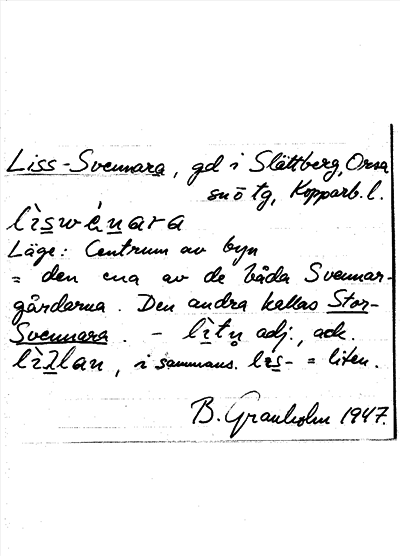 Liss-Svennara, gd i Slättberg, Orsa
sn o tg, Kopparb. l.
lìswénara
Läge: Centrum av byn
= den ena av de båda Svennar-
gårdarna. Den andra kallas Stor-
Svennara. - lìtn adj., ack.
lìllan, i sammans. lís- = liten.
B. Granholm 1947.